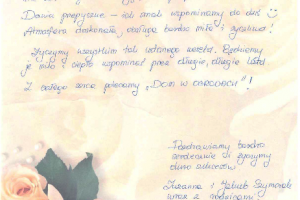 Dania przepyszne – ich smak wspominamy do dziś ☺
Atmosfera doskonała, obsługa bardzo miła i życzliwa!
Życzymy wszystkim tak udanego wesela. Będziemy
je miło i ciepło wspominać przez długie, długie lata!
Z całego serca polecamy „DOM W OGRODACH"!
Pozdrawiamy bardzo
serdecznie i życzymy
dużo sukcesów
Zuzanna i Jakub Szymonek
wraz z rodzicami